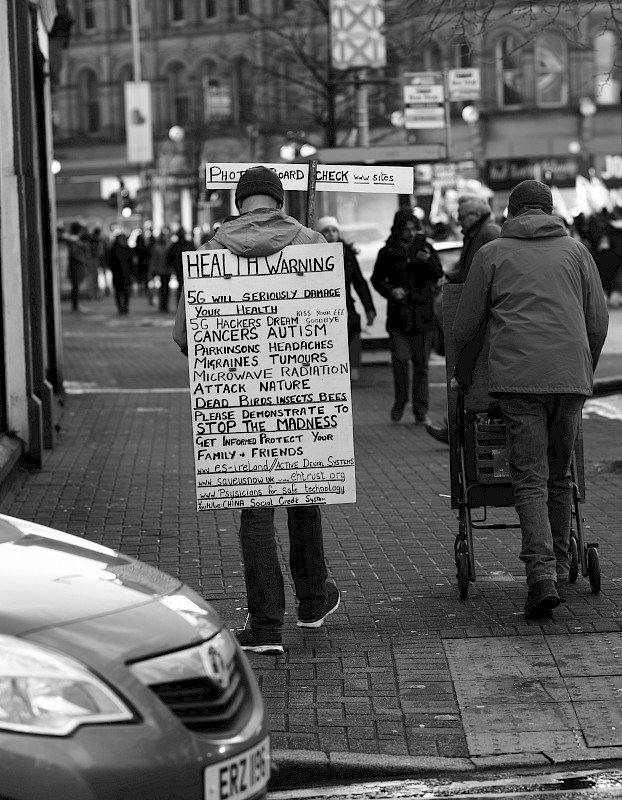 PHOTO BOARD CHECK www sites
HEALTH WARNING
5G WILL SERIOUSLY DAMAGE
YOUR HEALTH KISS YOUR £££
5G HACKERS DREAM GOODBYE
CANCERS AUTISM
PARKINSONS HEADACHES
MIGRAINES TUMOURS
MICROWAVE RADIATION
ATTACK NATURE
DEAD BIRDS INSECTS BEES
PLEASE DEMONSTRATE TO
STOP THE MADNESS
GET INFORMED PROTECT YOUR
FAMILY + FRIENDS
www es-ireland//ACTIVE DENIAL SYSTEMS
www saveusnow uk www ehtrust.org
www Physicians for safe technology
Youtube CHINA Social Credit System
ERZ 1196